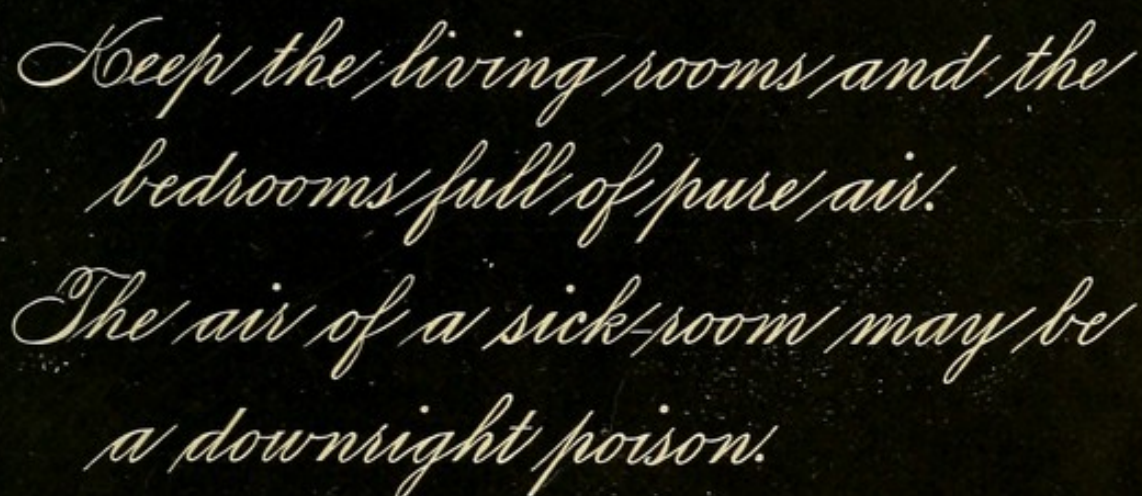 Keep the living rooms and the
bedrooms full of pure air.
The air of a sick-room may be
a downright poison.